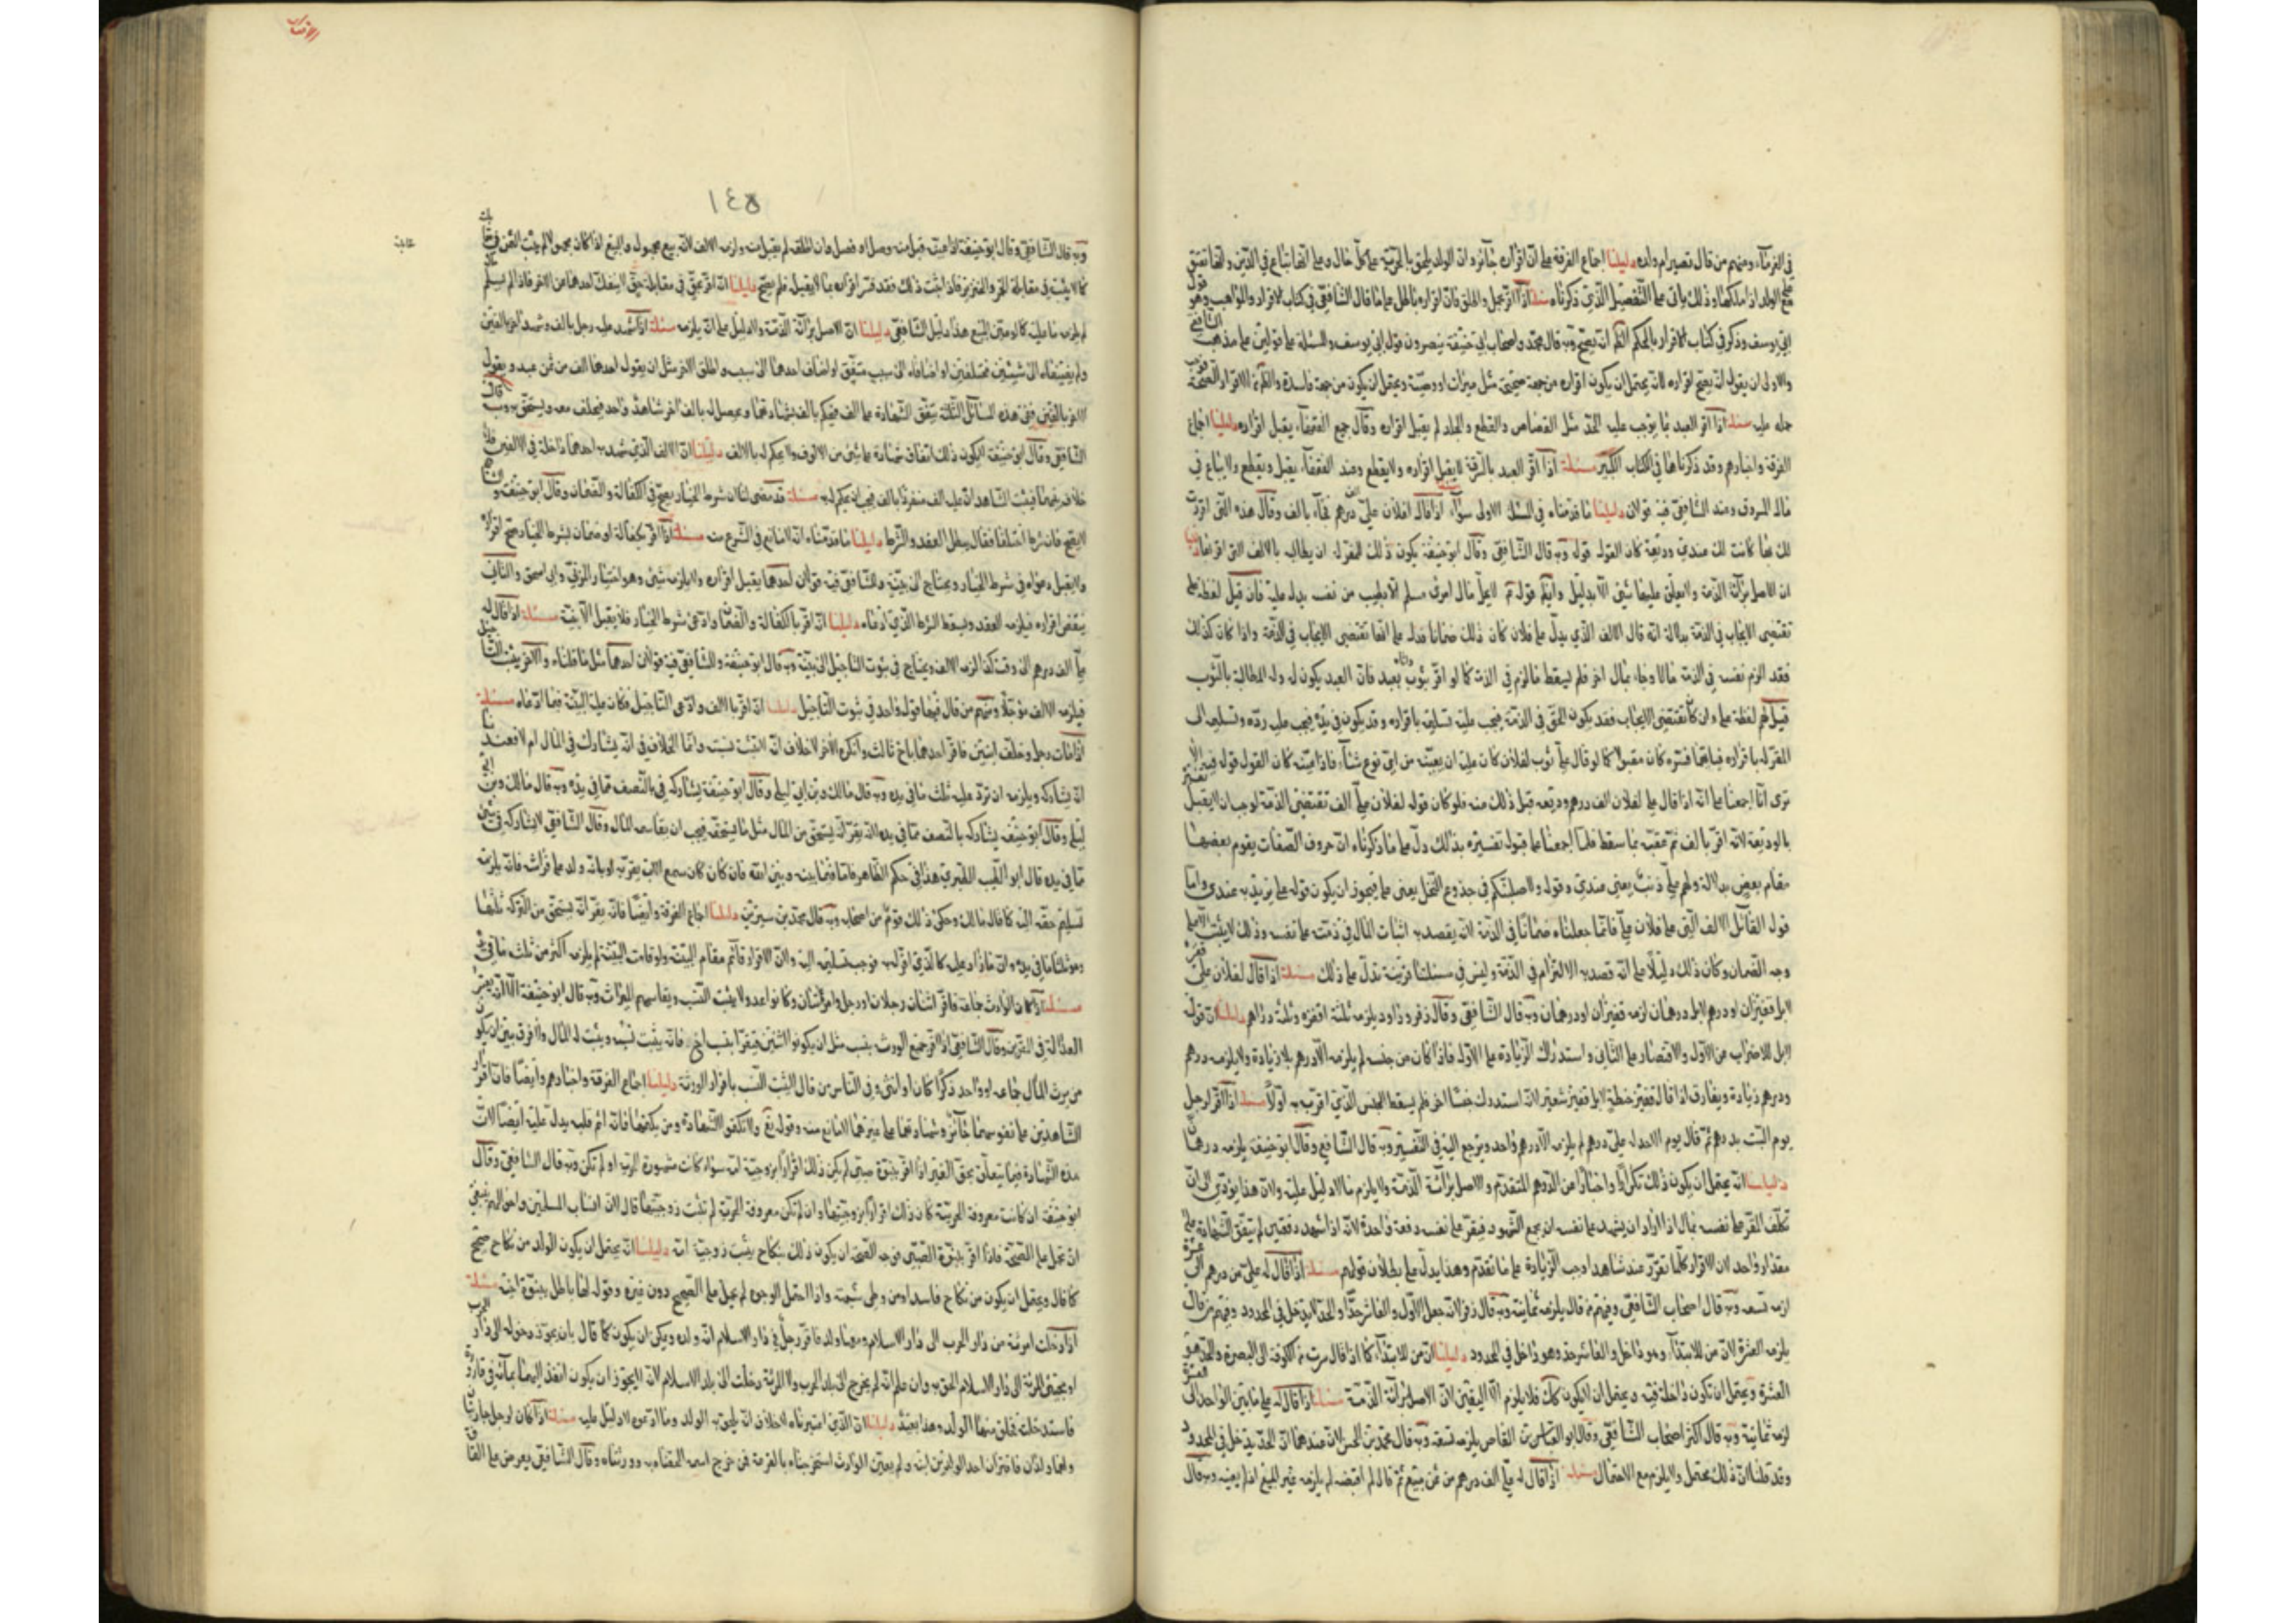 في الغرماء ومنهم من قال تصير ام ولده دليلنا اجماع الفرقة على ان اقراره جائز وان الولد يلحق بالحرية على كل حال وعلى انها تباع في الدين وانها تنعتق
على الولد اذا ملكها وذلك ياتي على التفصيل الذي ذكرناه مسئلة اذا اقر بحمل واطلق فان اقراره باطل على ما قال الشافعي في كتاب الاقرار والمواهب وهو قول
ابي يوسف وذكر في كتاب الاقرار بالحكم الظاهر انه يصح وبه قال محمد واصحاب ابي حنيفة ينصرون قول ابي يوسف والمسئلة على قولين على مذهب الشافعي
والاولى ان يقول انه يصح اقراره لانه يحتمل ان يكون اقراره من جهة صحيحة مثل ميراث او وصية ويحتمل ان يكون من جهة فاسدة والظاهر من الاقرار الصحة فوجب
حمله عليه مسئلة اذا اقر العبد بما يوجب عليه الحد مثل القصاص والقطع والجلد لم يقبل اقراره وقال جميع الفقهاء يقبل اقراره دليلنا اجماع
الفرقة واخبارهم وقد ذكرناها في الكتاب الكبير مسئلة اذا اقر العبد بالسرقة لا يقبل اقراره ولا يقطع وعند الفقهاء يقبل ويقطع ولا يباع في
مال المسروق وعند الشافعي فيه قولان دليلنا ما قدمناه في المسئلة الاولى سواء مسئلة اذا قال لفلان علي الف درهم فجاء بالف وقال هذه التي اقررت
لك بها كانت لك عندي وديعة كان القول قوله وبه قال الشافعي وقال ابو حنيفة يكون ذلك للمقر له ان يطالب بالالف التي اقر بها دليلنا
ان الاصل براءة الذمة ولا يعلق عليها شيئ الا بدليل وايضا قوله لا يحل مال امرئ مسلم الا بطيب من نفسه يدل عليه فان قيل لفظة علي
تقتضي الايجاب في الذمة بدلالة انه قال الالف الذي يدل على فلان كان ذلك ضمانا فدل على انها تقتضي الايجاب في الذمة واذا كان كذلك
فقد الزم نفسه في الذمة مالا وجاء بمال اخر فلم يسقط ما لزم في الذمة كما لو اقر بثوب وجاء بعبد فان العبد يكون له وله المطالبة بالثوب
قيل لهم لفظة علي وان كان تقتضي الايجاب فقد يكون الحق في الذمة فيجب عليه تسليمه باقراره وقد يكون في يده فيجب عليه رده وتسليمه الى
المقر له باقراره فبايهما فسره كان مقبولا كما لو قال علي ثوب لفلان كان عليه ان يعينه من اي نوع شاء فاذا عينه كان القول قوله فيه الا
ترى انا اجمعنا على انه اذا قال علي لفلان الف درهم وديعة قبل ذلك منه فلو كان قوله لفلان علي الف تقتضي الذمة لوجب ان لا يقبل تفسيره
بالوديعة لانه اقر بالف ثم عقبه بما سقط فلما اجمعنا على قبول تفسيره بذلك دل على ما ذكرناه ان حروف الصفات يقوم بعضها
مقام بعض بدلالة ولهم علي ذنب يعني عندي وقوله ولاصلبنكم في جذوع النخل يعني على فيجوز ان يكون قوله علي يريد به عندي واما
قول القائل الالف التي على فلان علي فانما جعلناه ضمانا في الذمة لانه يقصد به اثبات المال في ذمته على نفسه وذلك لا يثبت الا على
وجه الضمان وكان ذلك دليلا على انه قصد به الالتزام في الذمة وليس في مسئلتنا قرينة تدل على ذلك مسئلة اذا قال لفلان علي قفيز
لا بل قفيزان او درهم لا بل درهمان لزمه قفيزان او درهمان وبه قال الشافعي وقال زفر وداود يلزمه ثلثة اقفزة وثلثة دراهم دليلنا ان قوله
لا بل للاضراب عن الاول والاقتصار على الثاني واستدراك الزيادة على الاول فاذا كان من جنسه لم يلزمه الا درهم بلا زيادة ولا يلزمه درهم
ودرهم زيادة ويفارق اذا قال قفيز حنطة لا بل قفيز شعير لانه استدرك جنسا اخر فلم يسقط الجنس الذي اقر به اولا مسئلة اذا اقر لرجل
يوم السبت بدرهم ثم قال يوم الاحد له علي درهم لم يلزمه الا درهم واحد ويرجع اليه في التفسير وبه قال الشافعي وقال ابو حنيفة يلزمه درهمان
دليلنا انه يحتمل ان يكون ذلك تكرارا واخبارا عن الدرهم المتقدم والاصل براءة الذمة ولا يلزم ما لا دليل عليه ولان هذا يؤدي الى ان
تكلف المقر على نفسه بمال اذا اراد ان يشهد على نفسه ان يجمع الشهود فيقر على نفسه دفعة واحدة لانه اذا اشهد دفعتين لم يتفق الشهادة على
مقدار واحد لان الاقرار كلما تقرر عند شاهد اوجب الزيادة على ما تقدم وهذا يدل على بطلان قولهم مسئلة اذا قال له علي من درهم الى عشرة
لزمه تسعة وبه قال اصحاب الشافعي وفيهم من قال يلزمه ثمانية وبه قال زفر لانه جعل الاول والعاشر حدا والحد لا يدخل في المحدود وفيهم من قال
يلزمه العشرة لان من للابتداء وهو داخل والعاشر حد وهو داخل في المحدود دليلنا ان من للابتداء كما اذا قال سرت من الكوفة الى البصرة والحد هو
العشرة ويحتمل ان تكون داخلة فيه ويحتمل ان لا يكون كذلك فلا يلزم الا اليقين لان الاصل براءة الذمة مسئلة اذا قال له علي ما بين الواحد الى العشرة
لزمه ثمانية وبه قال اكثر اصحاب الشافعي وقال ابو العباس بن القاص يلزمه تسعة وبه قال محمد بن الحسن لان عندهما ان الحد يدخل في المحدود
وقد قلنا ان ذلك محتمل ولا يلزم مع الاحتمال مسئلة اذا قال له علي الف درهم من ثمن مبيع ثم قال لم اقبضه لم يلزمه غير المبيع اذا لم يعينه وبه قال
الاقرار
١٤٥
وبه قال الشافعي وقال ابو حنيفة اذا عينه قبل منه وصل او فصل وان اطلقه لم يقبل منه ولزمه الالف لانه بيع مجهول والبيع اذا كان مجهولا لم يثبت الثمن في
كما لا يثبت في مقابلة الخمر والخنزير فاذا ثبت ذلك فقد فسر اقراره بما لا يقبل فلم يصح دليلنا انه اقر بحق في مقابلة حق لا ينفك احدهما من الاخر فاذا لم يسلم
لم يلزمه ما عليه كما لو عين المبيع هذا دليل الشافعي دليلنا ان الاصل براءة الذمة والدليل على انه يلزمه مسئلة اذا شهد عليه رجل بالف وشهد اخر بالفين
ولم يضيفاه الى شيئين مختلفين او اضافاه الى سبب متفق او اضاف احدهما الى سبب واطلق الاخر مثل ان يقول احدهما الف من ثمن عبد ويقول
الاخر بالفين ففي هذه المسائل الثلث يتفق الشهادة على الف فيحكم بالف بشهادتهما ويحصل له بالف اخر شاهد واحد فيحلف معه ويستحق وبه قال
الشافعي وقال ابو حنيفة لا يكون ذلك اتفاق شهادة على شيئ من الالوف ولا يحكم له بالالف دليلنا ان الالف الذي شهد به احدهما داخلة في الالفين فلا
خلاف بينهما فيثبت الشاهدان عليه الف منفردا بالف فيجب ان يحكم له به مسئلة قد مضى لنا ان شرط الخيار يصح في الكفالة والضمان وقال ابو حنيفة و الشافعي
لا يصح فان شرط اختلفا فقال يبطل العقد والشرط دليلنا ما قدمناه انه لا مانع في الشرع منه مسئلة اذا اقر بكفالة او ضمان بشرط الخيار صح اقراره
ولا يقبل دعواه في شرط الخيار ويحتاج الى بينة وللشافعي فيه قولان احدهما يقبل اقراره ولا يلزمه شيئ وهو اختيار المزني وابي اسحق والثاني
يتبعض اقراره فيلزمه العقد ويسقط الشرط الذي ادعاه دليلنا انه اقر بالكفالة والضمان وادعى شرط الخيار فلا يقبل الا ببينة مسئلة اذا قال له
علي الف درهم الى وقت كذا لزمه الالف ويحتاج في ثبوت التاجيل الى بينة وبه قال ابو حنيفة وللشافعي فيه قولان احدهما مثل ما قلناه والاخر يثبت التاجيل
فيلزمه الالف مؤجلا ومنهم من قال فيها قول واحد في ثبوت التاجيل دليلنا انه اقر بالالف وادعى التاجيل فكان عليه البينة فيما ادعاه مسئلة
اذا مات رجل وخلف ابنين فاقر احدهما باخ ثالث وانكره الاخر لا خلاف ان نسبه لا يثبت وانما الخلاف في انه يشارك في المال ام لا فعندنا
انه يشاركه ويلزمه ان يرد عليه ثلث ما في يده وبه قال مالك وابن ابي ليلى وقال ابو حنيفة يشاركه بالنصف مما في يده وبه قال مالك وابن ابي
ليلى وقال ابو حنيفة يشاركه بالنصف مما في يده لانه يقر انه يستحق من المال مثل ما يستحقه فيجب ان يقاسمه المال وقال الشافعي لا يشاركه في شئ
مما في يده قال ابو الطيب الطبري هذا في حكم الظاهر فاما فيما بينه وبين الله فان كان سمع الاب يقر به او بانه ولد على فراشه فانه يلزمه
تسليم حقه اليه كما قال مالك وحكى ذلك قوم من اصحابه وبه قال محمد بن سيرين دليلنا اجماع الفرقة وايضا فانه يقر انه يستحق من التركة ثلثها
وهو ثلث ما في يده وان ما زاد عليه كالذي اقر له به فوجب تسليمه اليه ولان الاقرار قائم مقام البينة ولو قامت البينة لم يلزمه اكثر من ثلث ما في يده
مسئلة اذا كان الوارث جماعة فاقر اثنان رجلان او رجل وامرأتان وكانوا عدولا يثبت النسب ويقاسمهم الميراث وبه قال ابو حنيفة الا انه لم يعتبر
العدالة في المقرين وقال الشافعي اذا اقر جميع الورثة بنسب مثل ان يكونوا اثنين فيقرا بنسب اخ فانه يثبت نسبه ويثبت له المال ولا فرق بين ان يكون
من يرث المال جماعة او واحد ذكرا كان او انثى وفي الناس من قال لا يثبت النسب باقرار الورثة دليلنا اجماع الفرقة واخبارهم وايضا فان اقرار
الشاهدين على نفوسهما جائز وشهادتهما على غيرهما لا مانع منه وقوله تع ولا تكتموا الشهادة ومن يكتمها فانه اثم قلبه يدل عليه ايضا لان
هذه الشهادة فيما يتعلق بحق الغير اذا اقر ببنوة صبي لم يكن ذلك اقرارا بزوجية امه سواء كانت مشهورة الحرية او لم تكن وبه قال الشافعي وقال
ابو حنيفة ان كانت معروفة الحرية كان ذلك اقرارا بزوجيتها وان لم تكن معروفة الحرية لم تثبت زوجيتها قال لان انساب المسلمين واحوالهم ينبغي
ان تحمل على الصحة فاذا اقر ببنوة الصبي فوجه الصحة ان يكون ذلك بنكاح يثبت زوجية امه دليلنا انه يحتمل ان يكون الولد من نكاح صحيح
كما قال ويحتمل ان يكون من نكاح فاسد او من وطى شبهة واذا احتمل الوجوه لم يحمل على الصحيح دون غيره وقوله انها باطل ببنوة اخيه مسئلة
اذا دخلت امرئة من دار الحرب الى دار الاسلام ومعها ولد فاقر رجل في دار الاسلام انه ولده ويمكن ان يكون كما قال بان يجوز دخوله الى دار الحرب
او بمجيئ المرئة الى دار الاسلام لحق به وان علم انه لم يخرج الى بلد الحرب ولا المرئة دخلت الى بلد الاسلام لانه لا يجوز ان يكون انفذ اليها بمائه في قارورة
فاستدخلته فخلق منها الولد وهذا بعيد دليلنا ان الذي اعتبرناه لا خلاف انه يلحق به الولد وما ادعوه لا دليل عليه مسئلة اذا كان لرجل جاريتان
ولهما ولدان فاقر ان احد الولدين ابنه ولم يعين الوارث استخرجناه بالقرعة فمن خرج اسمه الحقناه به وورثناه وقال الشافعي يعرض على القا